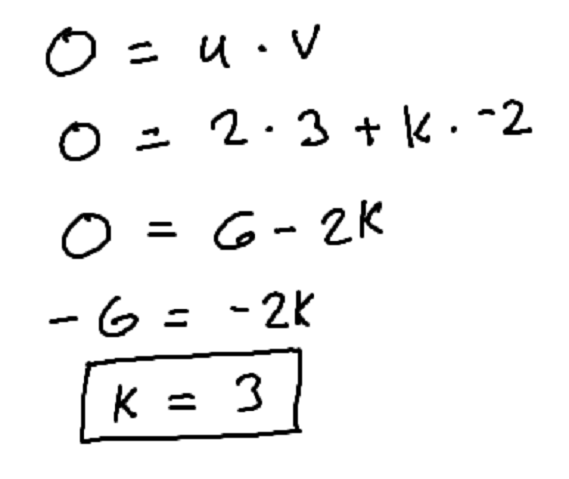 0 = u · v
0 = 2 · 3 + k · -2
0 = 6 - 2k
-6 = -2k
k = 3